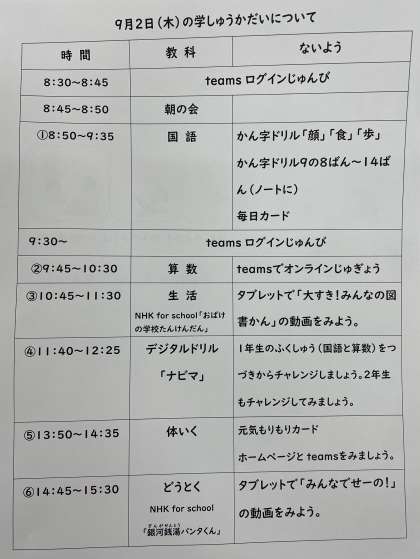 9月2日(木)の学しゅうかだいについて
時 間 教 科 ないよう
8:30〜8:45 teams ログインじゅんび
8:45〜8:50 朝の会
①8:50〜9:35 国 語 かん字ドリル「顔」「食」「歩」
かん字ドリル9の8ばん〜14ば
ん(ノートに)
毎日カード
9:30〜 teams ログインじゅんび
②9:45〜10:30 算 数 teamsでオンラインじゅぎょう
③10:45〜11:30 生 活 タブレットで「大すき!みんなの図
NHK for school「おばけ 書かん」の動画をみよう。
の学校たんけんだん」
④11:40〜12:25 デジタルドリル 1年生のふくしゅう(国語と算数)をつ
「ナビマ」 づきからチャレンジしましょう。2年生
もチャレンジしてみましょう。
⑤13:50〜14:35 体いく 元気もりもりカード
ホームページとteamsをみましょう。
⑥14:45〜15:30 どうとく タブレットで「みんなでせーの!」
NHK for school の動画をみよう。
「銀河銭湯パンタくん」